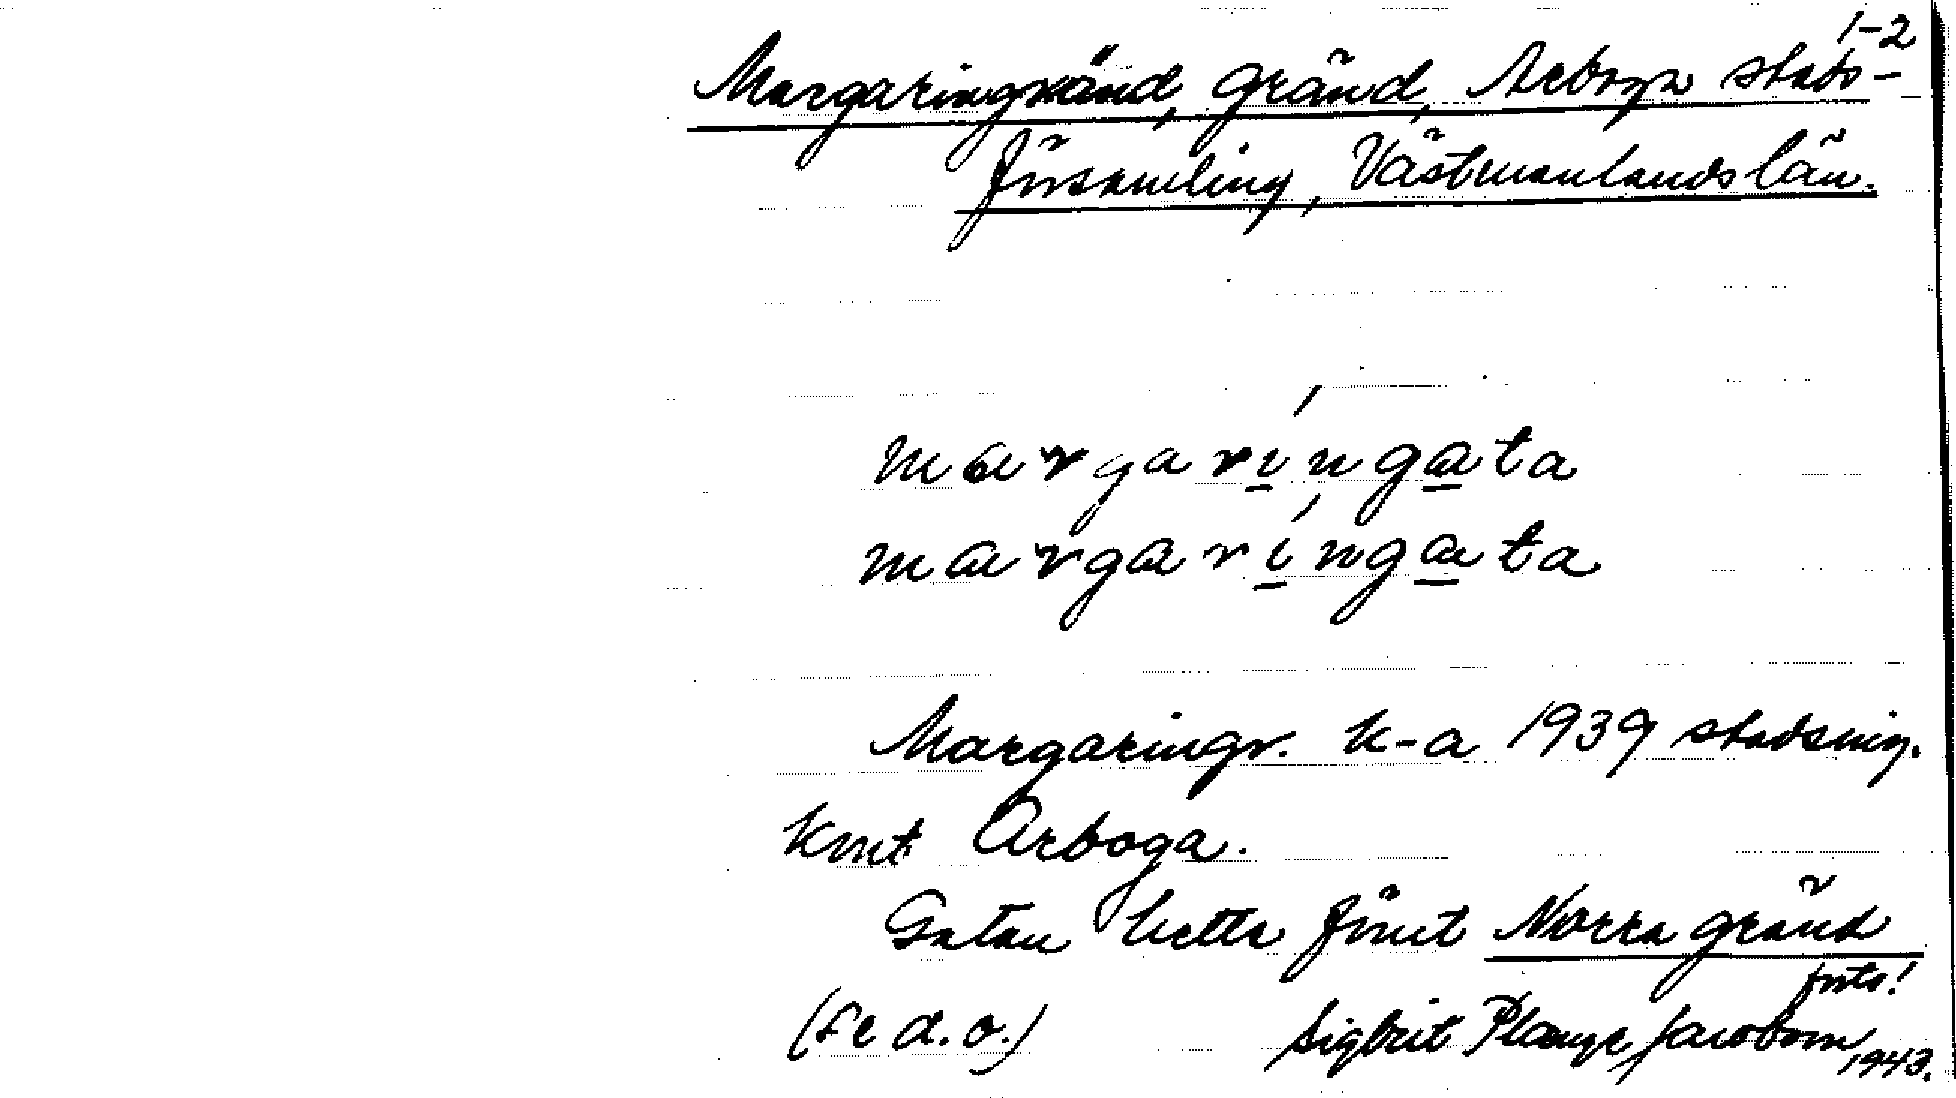 1-2
Margaringränd, gränd, Arboga stads-
församling, Västmanlands län.
margaríngata
margaríngata
Margaringr. K-a 1939 stadsing.
knt Arboga.
Gatan hette förut Norra gränd
(se d.o.) foto!
Sigbrit Plænge Jacobson 1943.